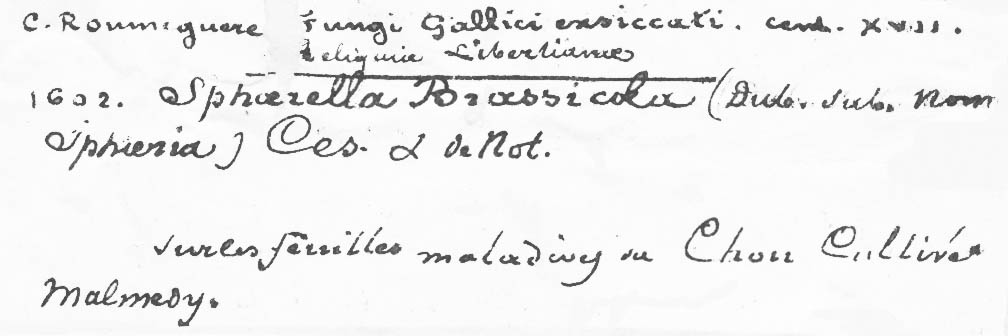 C. Roumeguere Fungi Gallici exsiccati. cent. XVII.
Reliquiae Libertianae
1602. Sphaerella Brassicola (Dub. sub. Nom
Sphaeria) Ces. & de Not.
sur les feuilles maladives du Chou Cultivé
Malmedy.